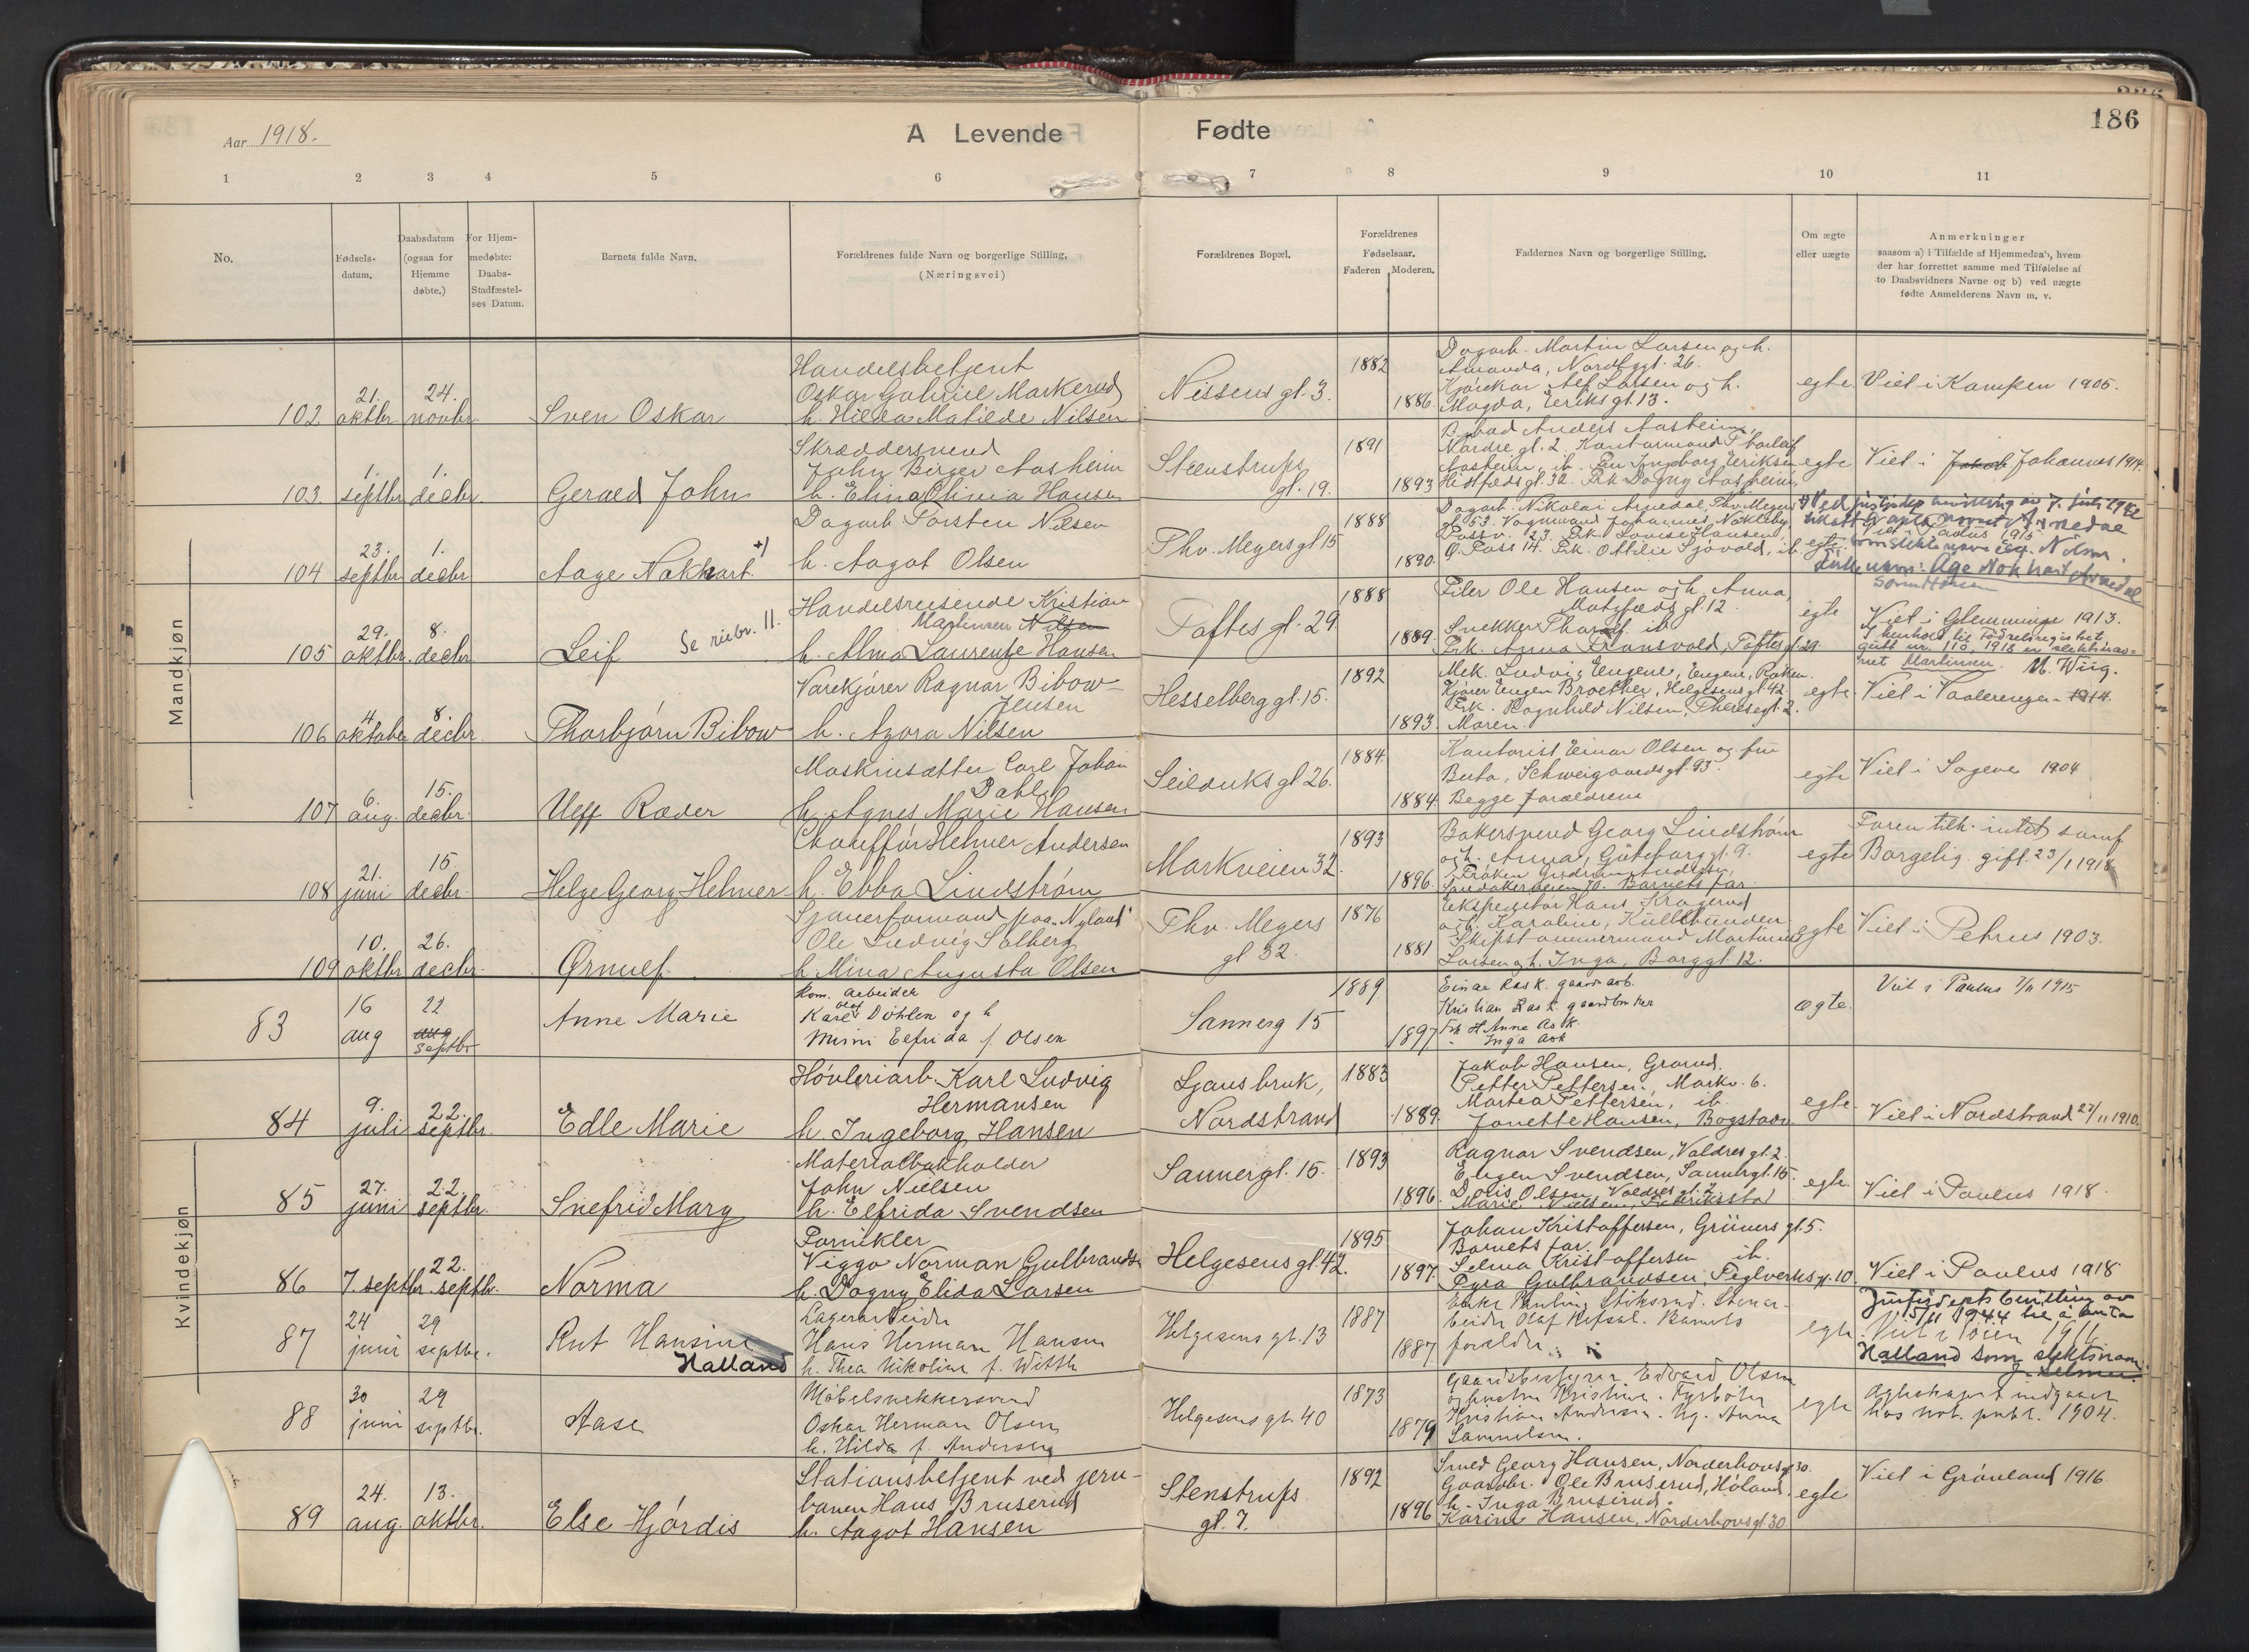 186
Aar 1918.
A Levende Fødte
1 2 3 4 5 6 7 8 9 10 11
No.
Fødsels-
datum.
Daabsdatum
(ogsaa for
Hjemme
døbte.)
For Hjem-
medøbte:
Daabs-
Stadfæstel-
ses Datum.
Barnets fulde Navn.
Forældrenes fulde Navn og borgerlige Stilling.
(Næringsvei)
Forældrenes Bopæl.
Forældrenes
Fødselsaar.
Faderen Moderen.
Faddernes Navn og borgerlige Stilling.
Om ægte
eller uægte
Anmerkninger
saasom a) i Tilfælde af Hjemmedaab, hvem
der har forrettet samme med Tilføielse af
to Daabsvidners Navne og b) ved uægte
fødte Anmelderens Navn m. v.
Mandkjøn
102
21.
oktbr.
24.
novbr.
Sven Oskar
Handelsbetjent
Oskar Gabriel Markerud
h. Hilda Matilde Nilsen
Nissens gt. 3.
1882
1886
Dagarb. Martin Larsen og h.
Amanda, Nordbygt. 26.
Kjørekar Alf Larsen og h.
Magda, Eriksgt. 13.
egte.
Viet i Kampen 1905.
103
1.
septbr.
1.
decbr.
Gerald John
Skræddersvend
John Birger Aasheim
h. Elina Olivia Hansen
Steenstrups
gt. 19.
1891
1893
Anders Aasheim,
Nordre gt. 2. Kontormand Thorleif
Aasheim, ib. Frk Ingborg Eriksen
gt. 32. Frk Dagny Aasheim,
egte
Viet i Jakob Johannes 1914.
104
23.
septbr.
1.
decbr.
Aage Nokhart. +)
Dagarb. Torsten Nilsen
h. Aagot Olsen
Thv. Meyers gt 15
1888
1890.
Dagarb. Nikolai Arnedal, Thv. Meyers
gt. 53. Vognmand Johannes Nökleby,
Fossv. 23. Frk. Lovise Hansen,
O. Foss 14. Frk. Ottilie Sjøvold, ib.
egte.
+) Ved justisdep. bevilling av 7. juli 1942
Viet i Paulus 1915
Fulle navn: Åge Nokhart Arnedal
105
29.
oktbr.
8.
decbr.
Leif
Se rubr. 11.
Handelsreisende Kristian
Martinsen Nilsen
h. Alma Laurentze Hansen
Toftes gt. 29
1888
1889.
Filer Ole Hansen og h. Anna,
gt. 12.
Snekker Thoralf ib
Frk. Anna Transvold, Toftes gt. 29.
egte
Viet i Glemminge 1913.
I henhold til fødselsregistret,
gutt nr. 110, 1918 er slektsnav-
net Martinsen. M. Wiig.
106
4.
oktober
8.
decbr.
Thorbjørn Bibow
Varekjører Ragnar Bibow-
Jensen
h. Azora Nilsen
Hesselberg gt. 15.
1892
1893.
Mek. Ludvig Eugene, Eugene, Røken.
Kjører Eugen Broether, Helgesens gt 42.
Frk. Ragnhild Nilsen, Theresegt. 2.
Moren.
egte.
Viet i Vaalerengen 1914.
107
6.
aug.
15.
decbr.
Ulff Ræder
Maskinsætter Carl Johan
Dahl
h. Agnes Marie Hansen
Seilduks gt 26.
1884.
1884.
Kontorist Einar Olsen og fru
Berta, Schweigaards gt. 93.
Begge forældrene
egte
Viet i Sagene 1904
108
21.
juni
15
decbr.
Helge Georg Helmer
Chauffør Helmer Andersen
h. Ebba Lindstrøm
Markveien 32.
1893
1896.
Bakersvend Georg Lindstrøm
og h. Anna, Göteborg gt. 9.
Frøken Gudrun
70. Barnets far
egte
Faren tilh. intet samf.
Borgelig gift. 23/1 1918
109
10.
oktbr.
26.
decbr.
Ørnulf
Sjauerformand paa "Nyland"
Ole Ludvig Solberg
h Mina Augusta Olsen
Thv. Meyers
gt 32.
1876
1881
Ekspeditør Hans Kragerud
og h. Karoline,
Skipstømmermand Martinius
Larsen og h. Inga, Borggt. 12.
egte
Viet i Petrus 1903.
83
16
aug
22
aug
septbr
Anne Marie
Kom. arbeider
Karl Olaf Döhlen og h
Mimi Elfrida f. Olsen
Sannerg 15
1889
1897
Einar Rask. gaardarb.
Kristian Rask gaardbruker
Frk H Anna Ask.
" Inga Ask
ægte.
Viet i Paulus 7/11 1915
84
9.
juli
22.
septbr.
Edle Marie
Høvleriarb. Karl Ludvig
Hermansen
h. Ingeborg Hansen
Ljansbruk,
Nordstrand
1883
1889.
Jakob Hansen, Grorud.
Petter Pettersen., Markv. 6.
Martea Pettersen, ib.
Jonette Hansen, Bogstadv.
egte
Viet i Nordstrand 27/11 1910.
Kvindekjøn
85
27.
juni
22.
septbr.
Snefrid Mary
Materialbokholder
John Nielsen
h. Elfrida Svendsen
Sannergt. 15.
1893
1896.
Ragnar Svendsen, Valdresgt. 2.
Eugen Svendsen, Sannergt. 15.
Doris Olsen, Valdresgt. 2.
Marie Nielsen, Fredriksstad
egte.
Viet i Paulus 1918.
86
7. septbr.
22.
septbr.
Norma
Fornikler
Viggo Norman Gulbrandsen
h. Dagny Elida Larsen
Helgesens gt. 42.
1895
1897.
Johan Kristoffersen, Grüners gt. 5.
Barnets far.
Selma Kristoffersen ib.
Dyra Gulbrandsen, Teglverks gt. 10.
Viet i Paulus 1918
87
24
juni
29
septbr.
Rut Hansine
Halland
Lagerarbeider
Hans Herman Hansen
h. Thea Nikoline f. Witth
Helgesens gt. 13
1887
1887
Enke Pauline Stiksrud. Stenar-
beider Olaf Refsal. Barnets
forældre.
egte.
Justisdepts bevilling av
15/11 1944 til å anta
Viet i Tøien 1911.
Halland som slektsnavn.
88
30
juni
29
septbr.
Aase
Møbelsnekkersvend
Oskar Herman Olsen
h. Hilda f. Andersen
Helgesens gt. 40
1873
1879
Gaardsbestyrer Edvard Olsen
og hustru Kristine. Fyrbøter
Kristian Andersen. Ug. Anna
Samuelsen.
egte
Egteskapet indgaaet
hos not. publ. 1904.
89
24.
aug.
13.
oktbr.
Else Hjördis
Stationsbetjent ved jern-
banen Hans Bruserud
h. Aagot Hansen
Stenstrups
gt. 7.
1892
1896
Smed Georg Hansen, Norderhovsgt. 30.
Gaardbr. Ole Bruserud, Høland.
h. Inga Bruserud.
Karine Hansen, Norderhovsgt. 30
egte
Viet i Grønland 1916